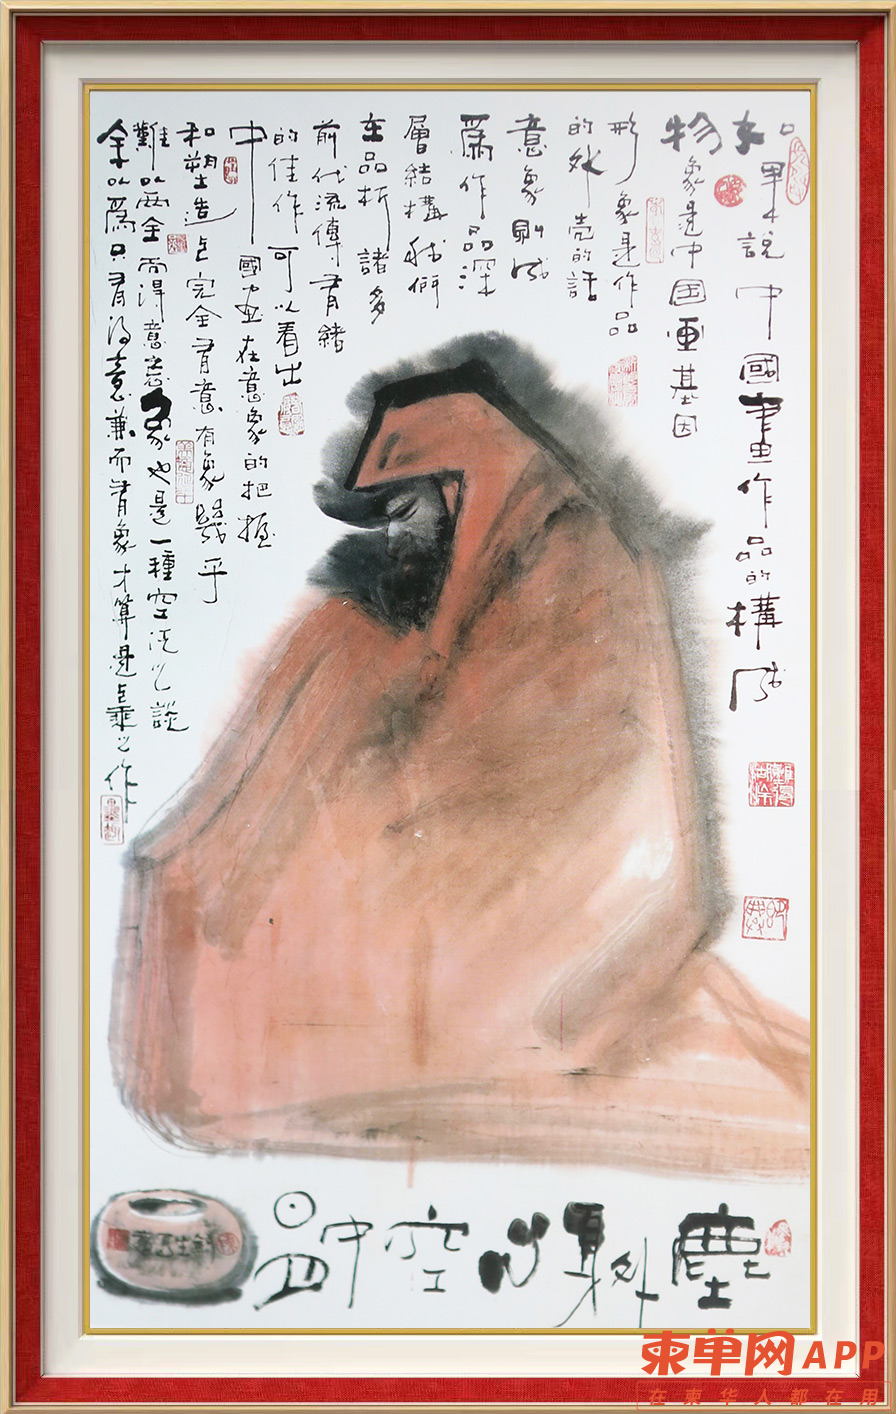 如果說中國畫作品的構成
物象是中国画基因
形象是作品
的外壳的話
意象則成
爲作品深
層結構我們
在品析諸多
前代流傳有緒
的佳作可以看出
中國画在意象的把握
和塑造上完全有意有象幾乎
難以兩全而得意忘象也是一種空泛之談
余以爲只有得意兼而有象才算是上乘之作
塵外身心空中
柬单网APP
在柬华人都在用